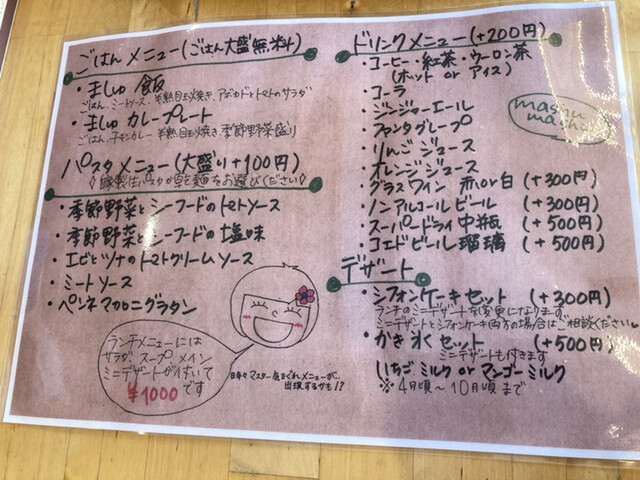 ごはんメニュー(ごはん大盛無料)
・ましゅ飯
ごはん、ミートソース、半熟目玉焼き、アボカドとトマトのサラダ
・ましゅカレープレート
ごはん、チキンカレー、半熟目玉焼き、季節野菜盛り
パスタメニュー(大盛り+100円)
・季節野菜とシーフードのトマトソース
・季節野菜とシーフードの塩味
・エビとツナのトマトクリームソース
・ミートソース
・ペンネマカロニグラタン
ランチメニューには
サラダ、スープ、メイン
ミニデザートが付いて
¥1000です
日々マスター気まぐれメニューが、
出現するかも!?
ドリンクメニュー(+200円)
・コーヒー・紅茶・ウーロン茶
(ホット or アイス)
・コーラ
・ジンジャーエール
・ファンタグレープ
・りんごジュース
・オレンジジュース
・グラスワイン 赤or白(+300円)
・ノンアルコールビール(+300円)
・スーパードライ中瓶(+500円)
・コエドビール瑠璃(+500円)
mashu
mashu
デザート
・シフォンケーキセット(+300円)
ランチのミニデザートを変更になります
ミニデザートとシフォンケーキ両方の場合はご相談ください
・かき氷セット(+500円)
ミニデザートも付きます
いちごミルク or マンゴーミルク
※4月頃〜10月頃まで